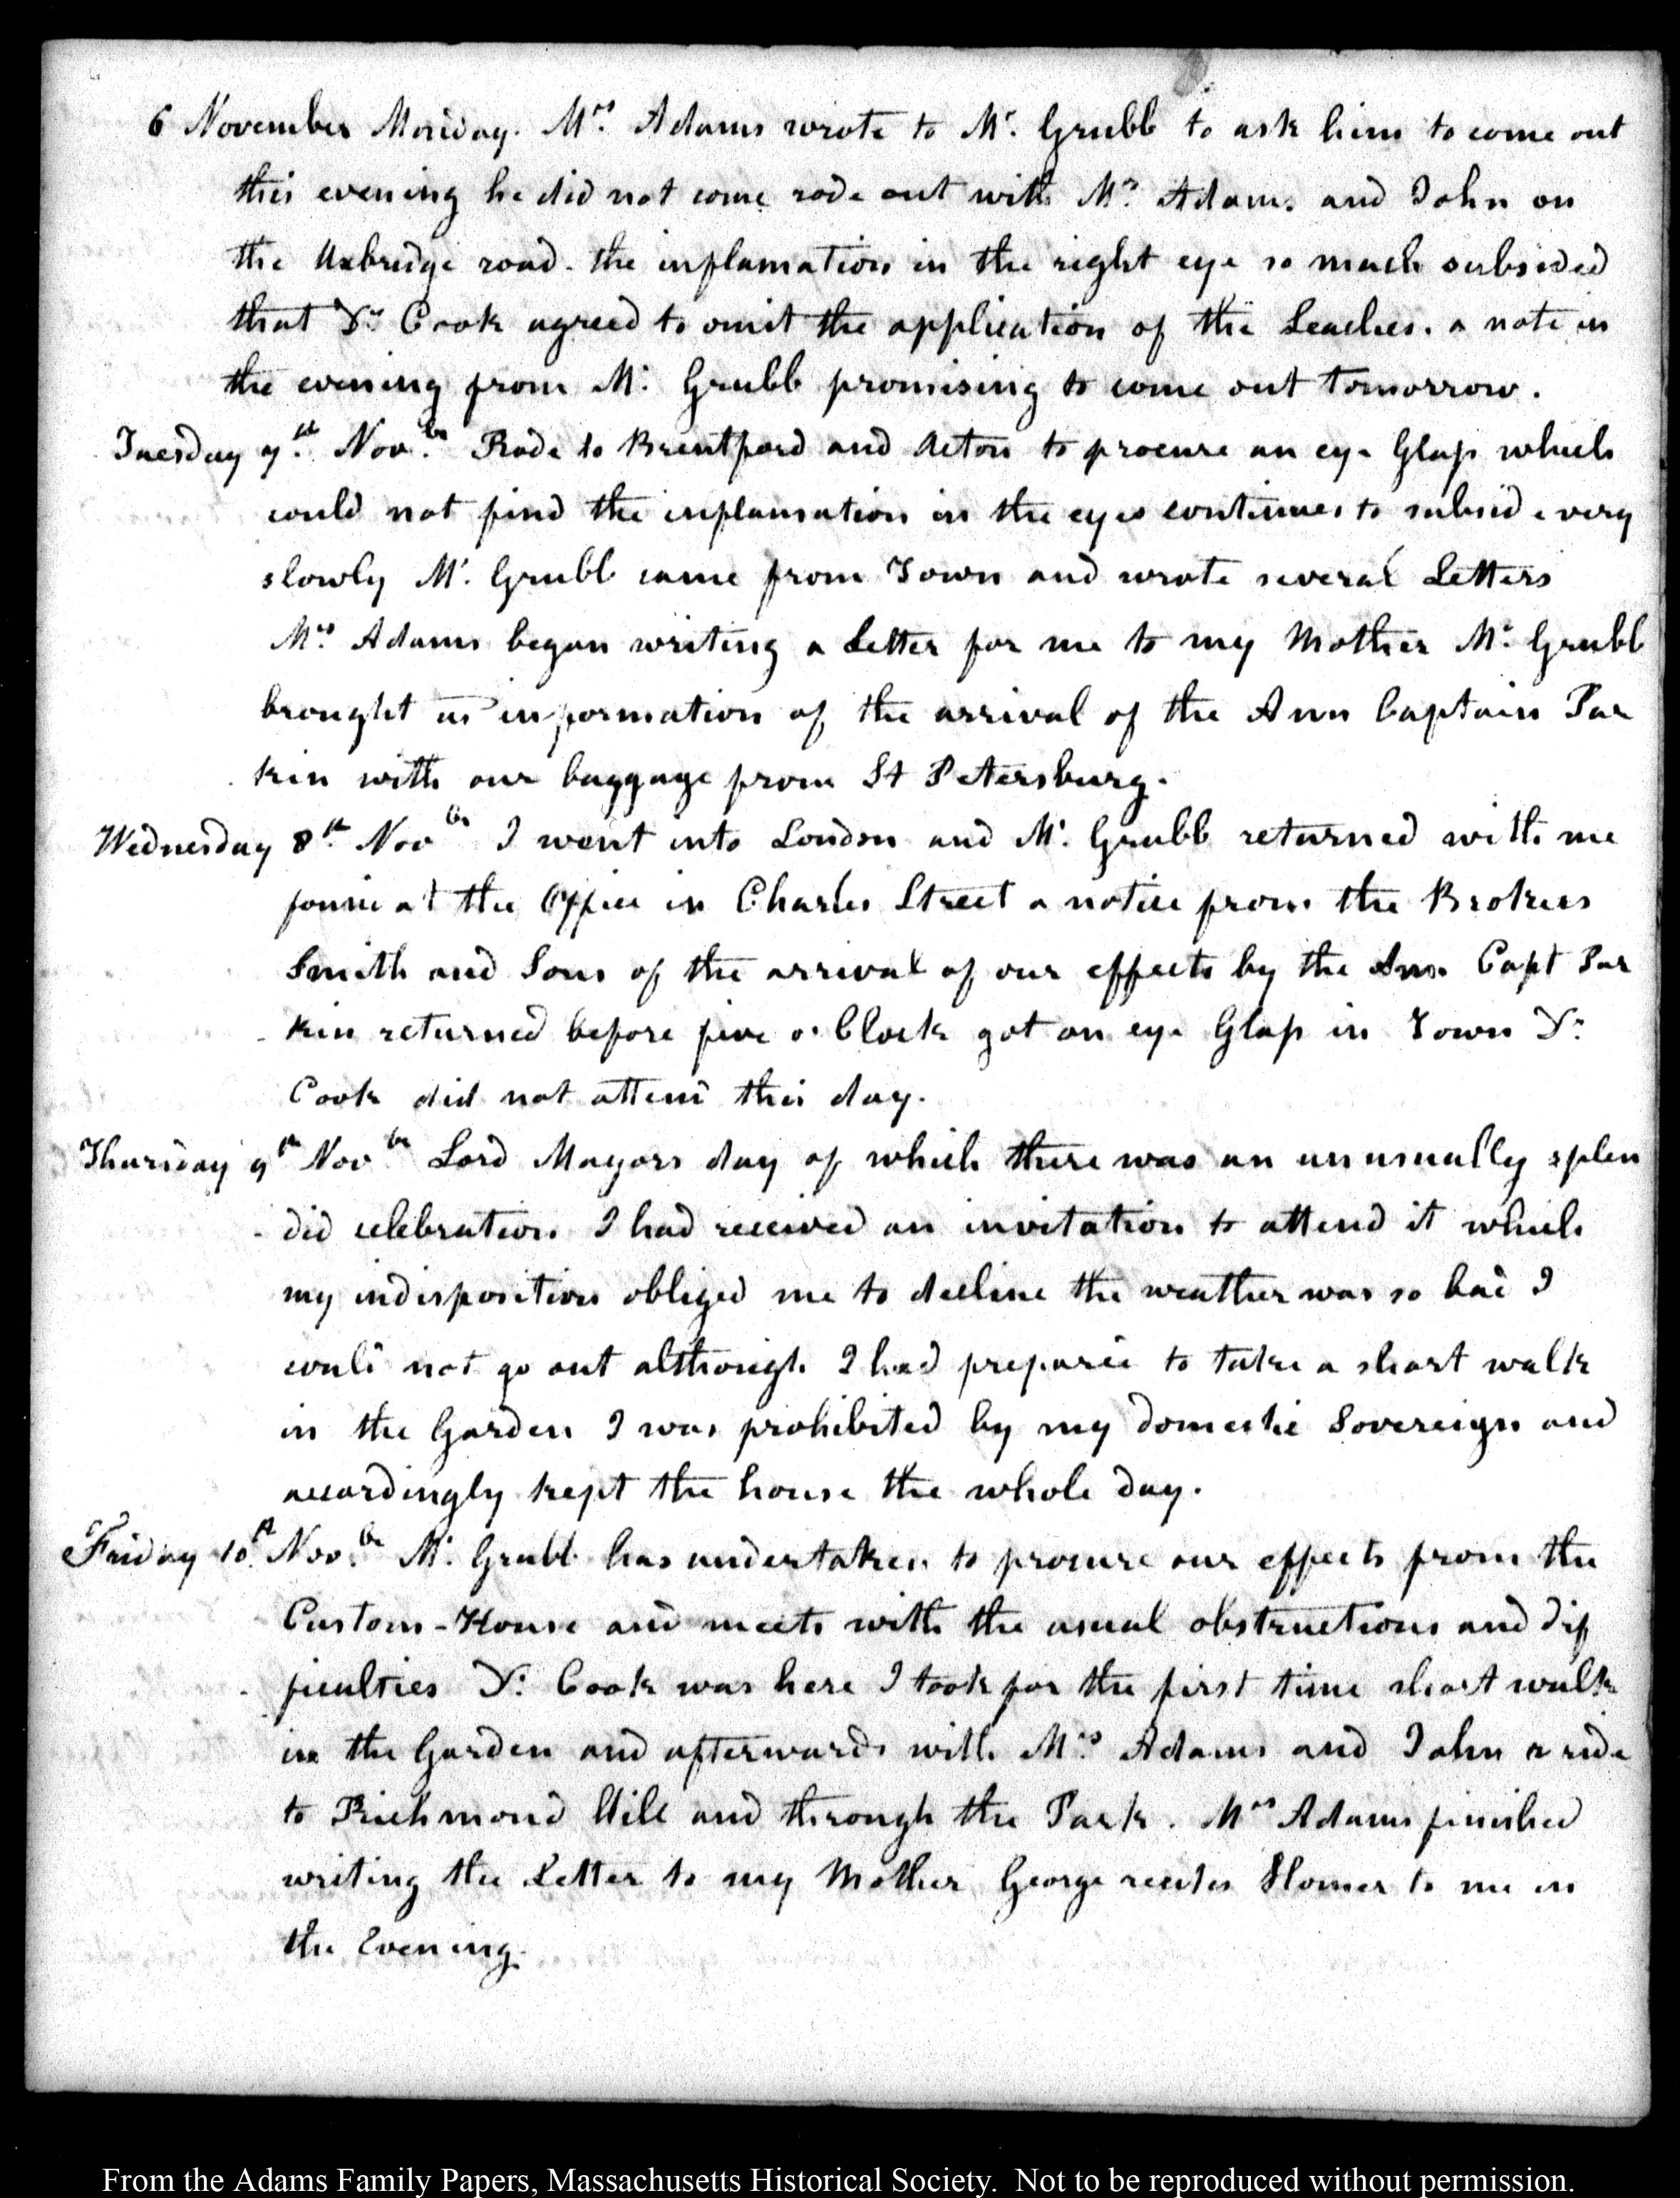 6 November Monday. Mrs. Adams wrote to Mr. Grubb to ask him to come out
this evening he did not come rode out with Mrs. Adams and John on
the Uxbridge road. the inflamation in the right eye so much subsided
that Dr. Cook agreed to omit the application of the Leaches. a note in
the evening from Mr. Grubb promising to come out tomorrow.
Tuesday 7th. Novbr. Rode to Brentford and Acton to procure an eye Glass which
could not find the inflamation in the eyes continues to subside very
slowly Mr. Grubb came from Town and wrote several Letters
Mrs. Adams began writing a Letter for me to my Mother Mr. Grubb
brought us information of the arrival of the Ann Captain Par
kin with our baggage from St Petersburg.
Wednesday 8th Novbr I went into London and Mr. Grubb returned with me
found at the Office in Charles Street a notice from the Brokers
Smith and Sons of the arrival of our effects by the Ann Capt Par
kin returned before five o'Clock got an eye Glass in Town Dr.
Cook did not attend this day.
Thursday 9th Novbr Lord Mayors day of which there was an unusually splen
did celebration I had received an invitation to attend it which
my indisposition obliged me to decline the weather was so bad I
could not go out although I had prepared to take a short walk
in the Garden I was prohibited by my domestic Sovereign and
accordingly kept the house the whole day.
Friday 10th. Novbr. Mr. Grubb has undertaken to procure our effects from the
Custom-House and meets with the usual obstructions and dif
ficulties Dr. Cook was here I took for the first time short walk
in the Garden and afterwards with Mrs Adams and John a ride
to Richmond Hill and through the Park. Mrs Adams finished
writing the Letter to my Mother George recites Homer to me in
the Evening.
From the Adams Family Papers, Massachusetts Historical Society. Not to be reproduced without permission.